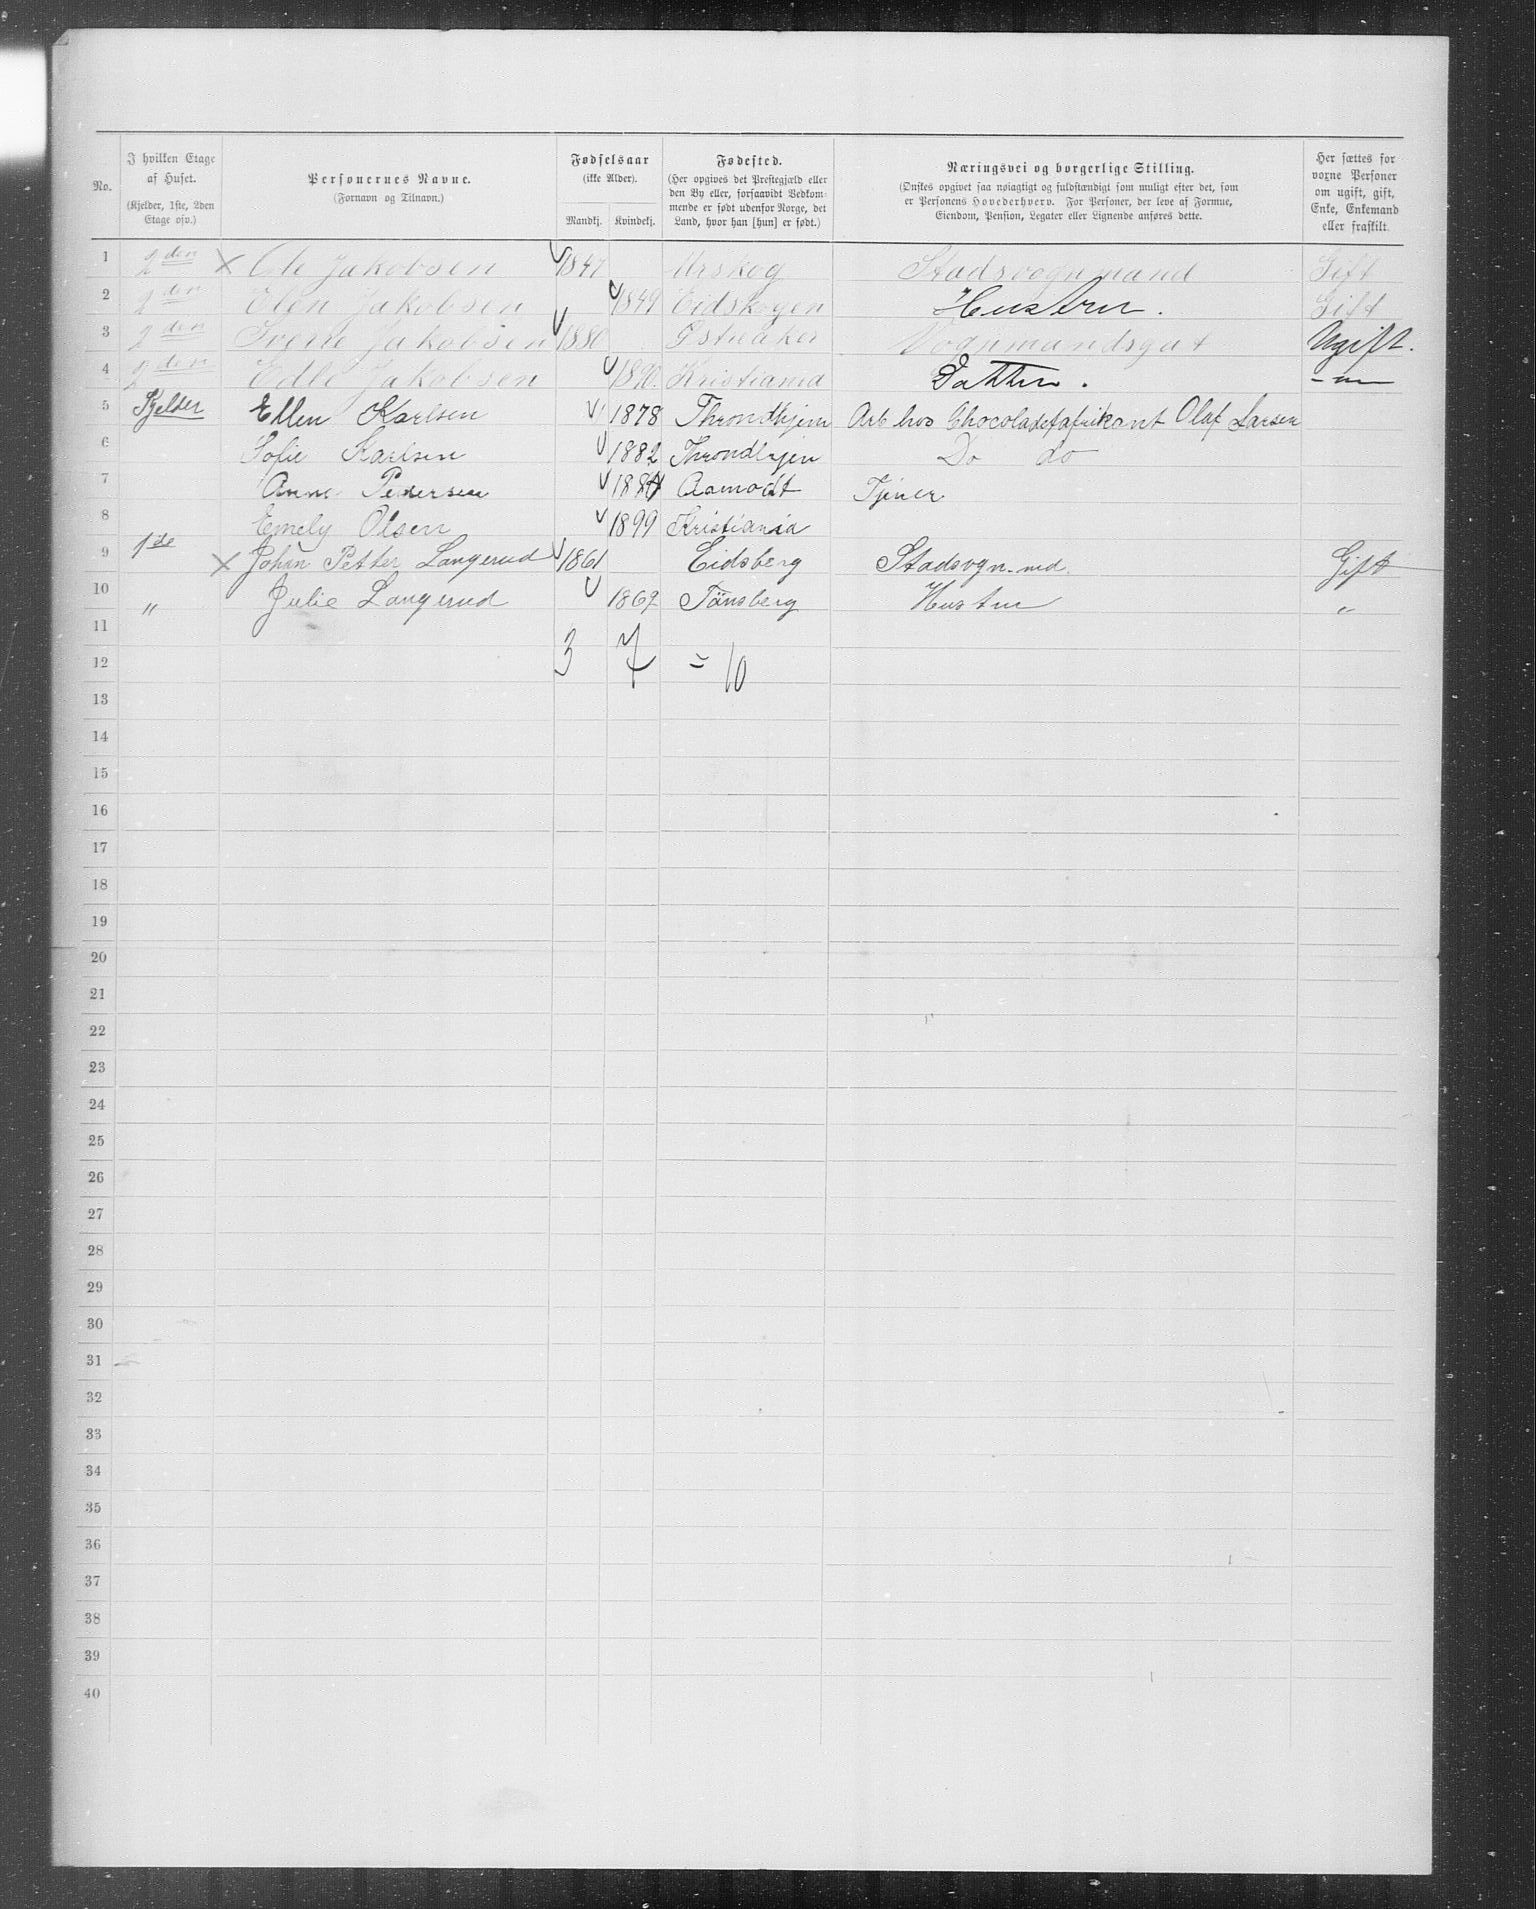 No. | I hvilken Etage af Huset. (Kjelder, 1ste, 2den Etage osv.) | Personernes Navne. (Fornavn og Tilnavn.) | Fødselsaar (ikke Alder). Mandkj. Kvindekj. | Fødested. (Her opgives det Prestegjæld eller den By eller, forsaavidt Vedkommende er født udenfor Norge, det Land, hvor han [hun] er født.) | Næringsvei og borgerlige Stilling. (Ønskes opgivet saa nøiagtigt og fuldstændigt som muligt efter det, som er Personens Hovederhverv. For Personer, der leve af Formue, Eiendom, Pension, Legater eller Lignende anføres dette. | Her sættes for voxne Personer om ugift, gift, Enke, Enkemand eller fraskilt.
1 2den × Ole Jakobsen 1847 Urskog Stadsvognmand Gift
2 2den Elen Jakobsen 1849 Eidskogen Hustru. Gift
3 2den Jakobsen 1880 Østreaker Vognmandsgut Ugift.
4 2den Jakobsen 1890. Kristiania Datter. -"-
5 Kjelder Ellen Karlsen 1878 Throndhjem Arb hos Chocoladefafrikant Olaf Larsen
6 Sofie Karlsen 1882 Throndhjem Do do
7 Anne Pedersen Aamodt Tjener
8 Emely Olsen 1899 Kristiania
9 1ste × Johan Petter Langerud 1861 Eidsberg Stadsvogn.md. Gift
10 " Julie Langerud 1862 Tönsberg Hustru "
11
12 3 7 = 10
13
14
15
16
17
18
19
20
21
22
23
24
25
26
27
28
29
30
31
32
33
34
35
36
37
38
39
40